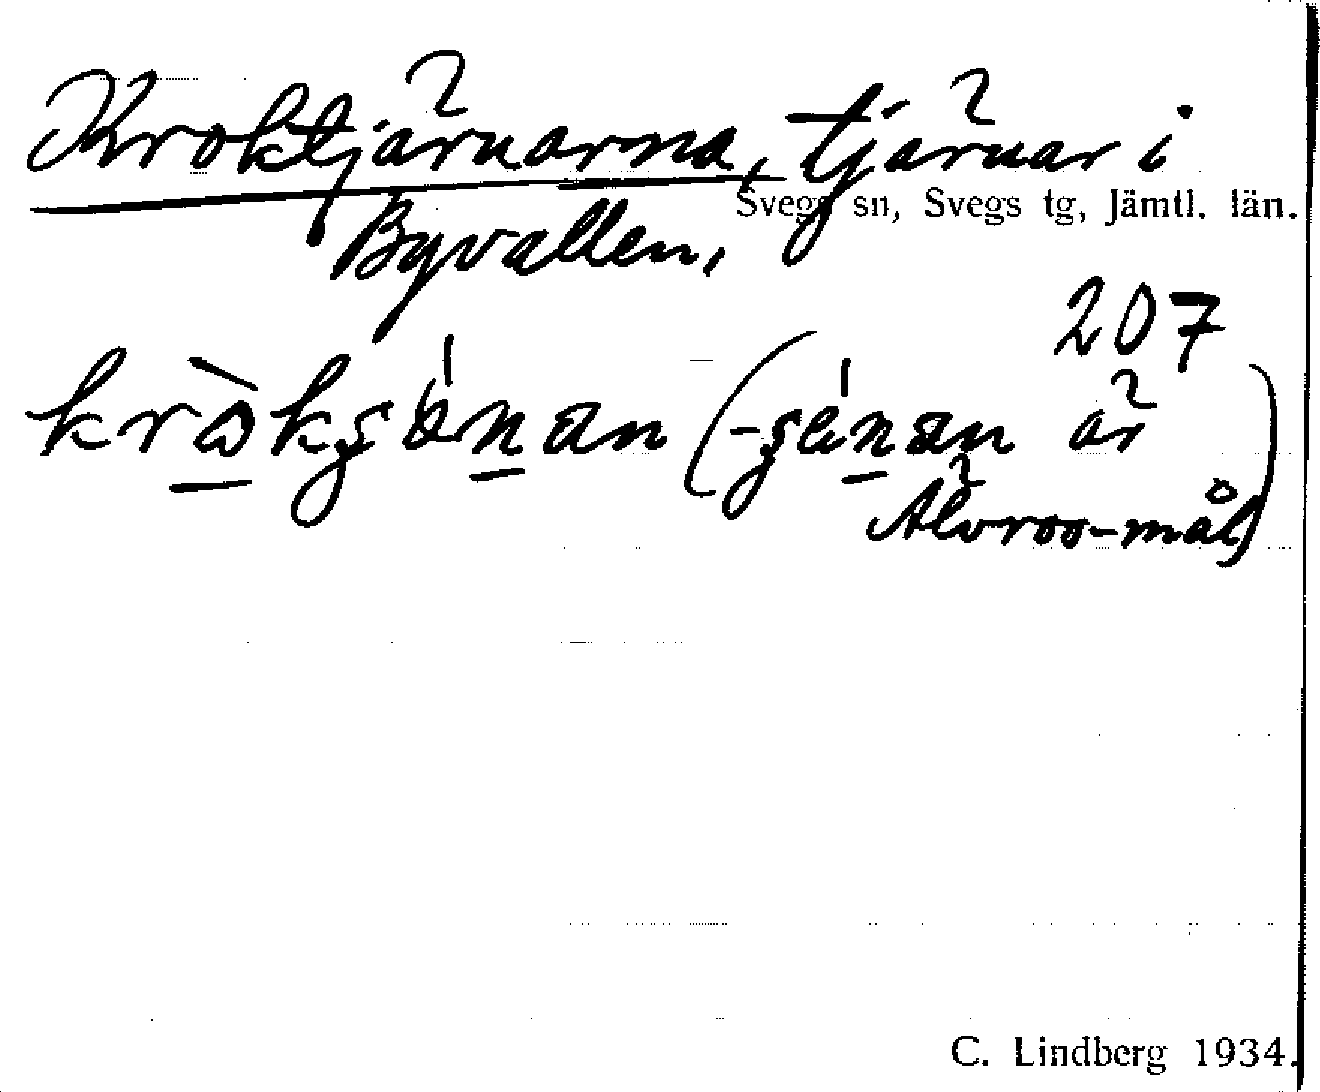 Kroktjärnarna, tjärnar i
Svegs sn, Svegs tg, Jämtl. län.
Byvallen,
207
(-
är
Älvros-mål)
C. Lindberg 1934.